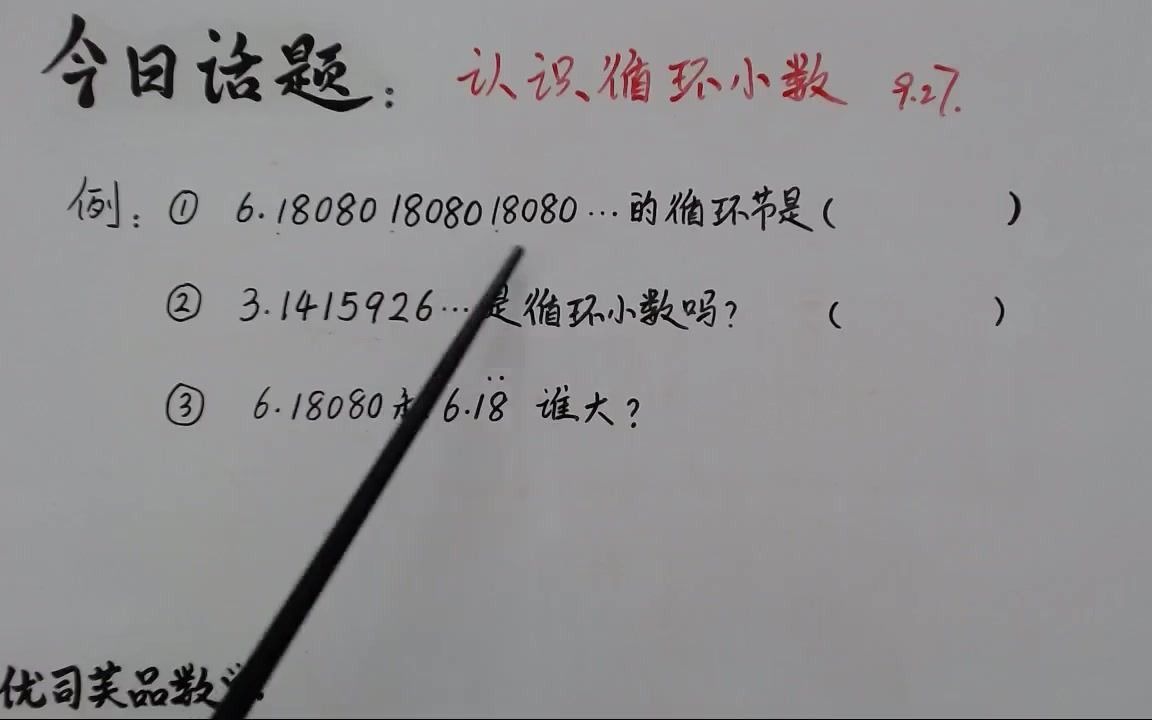 今日话题： 认识循环小数 9.27.
例：① 6.18080 18080 18080…的循环节是（ ）
② 3.1415926…是循环小数吗？ （ ）
③ 6.18080 6.1̇8̇ 谁大？
优司芙品数